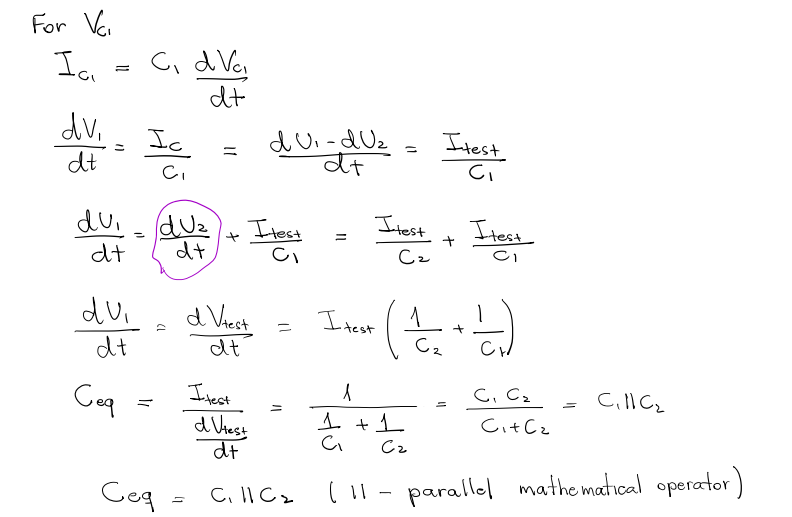 For V_C1
I_C1 = C_1 dV_C1/dt
dV_1/dt = I_C/C_1 = dU_1-dU_2/dt = I_test/C_1
dU_1/dt = dU_2/dt + I_test/C_1 = I_test/C_2 + I_test/C_1
dU_1/dt = dV_test/dt = I_test (1/C_2 + 1/C_1)
C_eq = I_test/(dV_test/dt) = 1/(1/C_1 + 1/C_2) = C_1 C_2/(C_1+C_2) = C_1||C_2
C_eq = C_1||C_2 ( || - parallel mathematical operator)